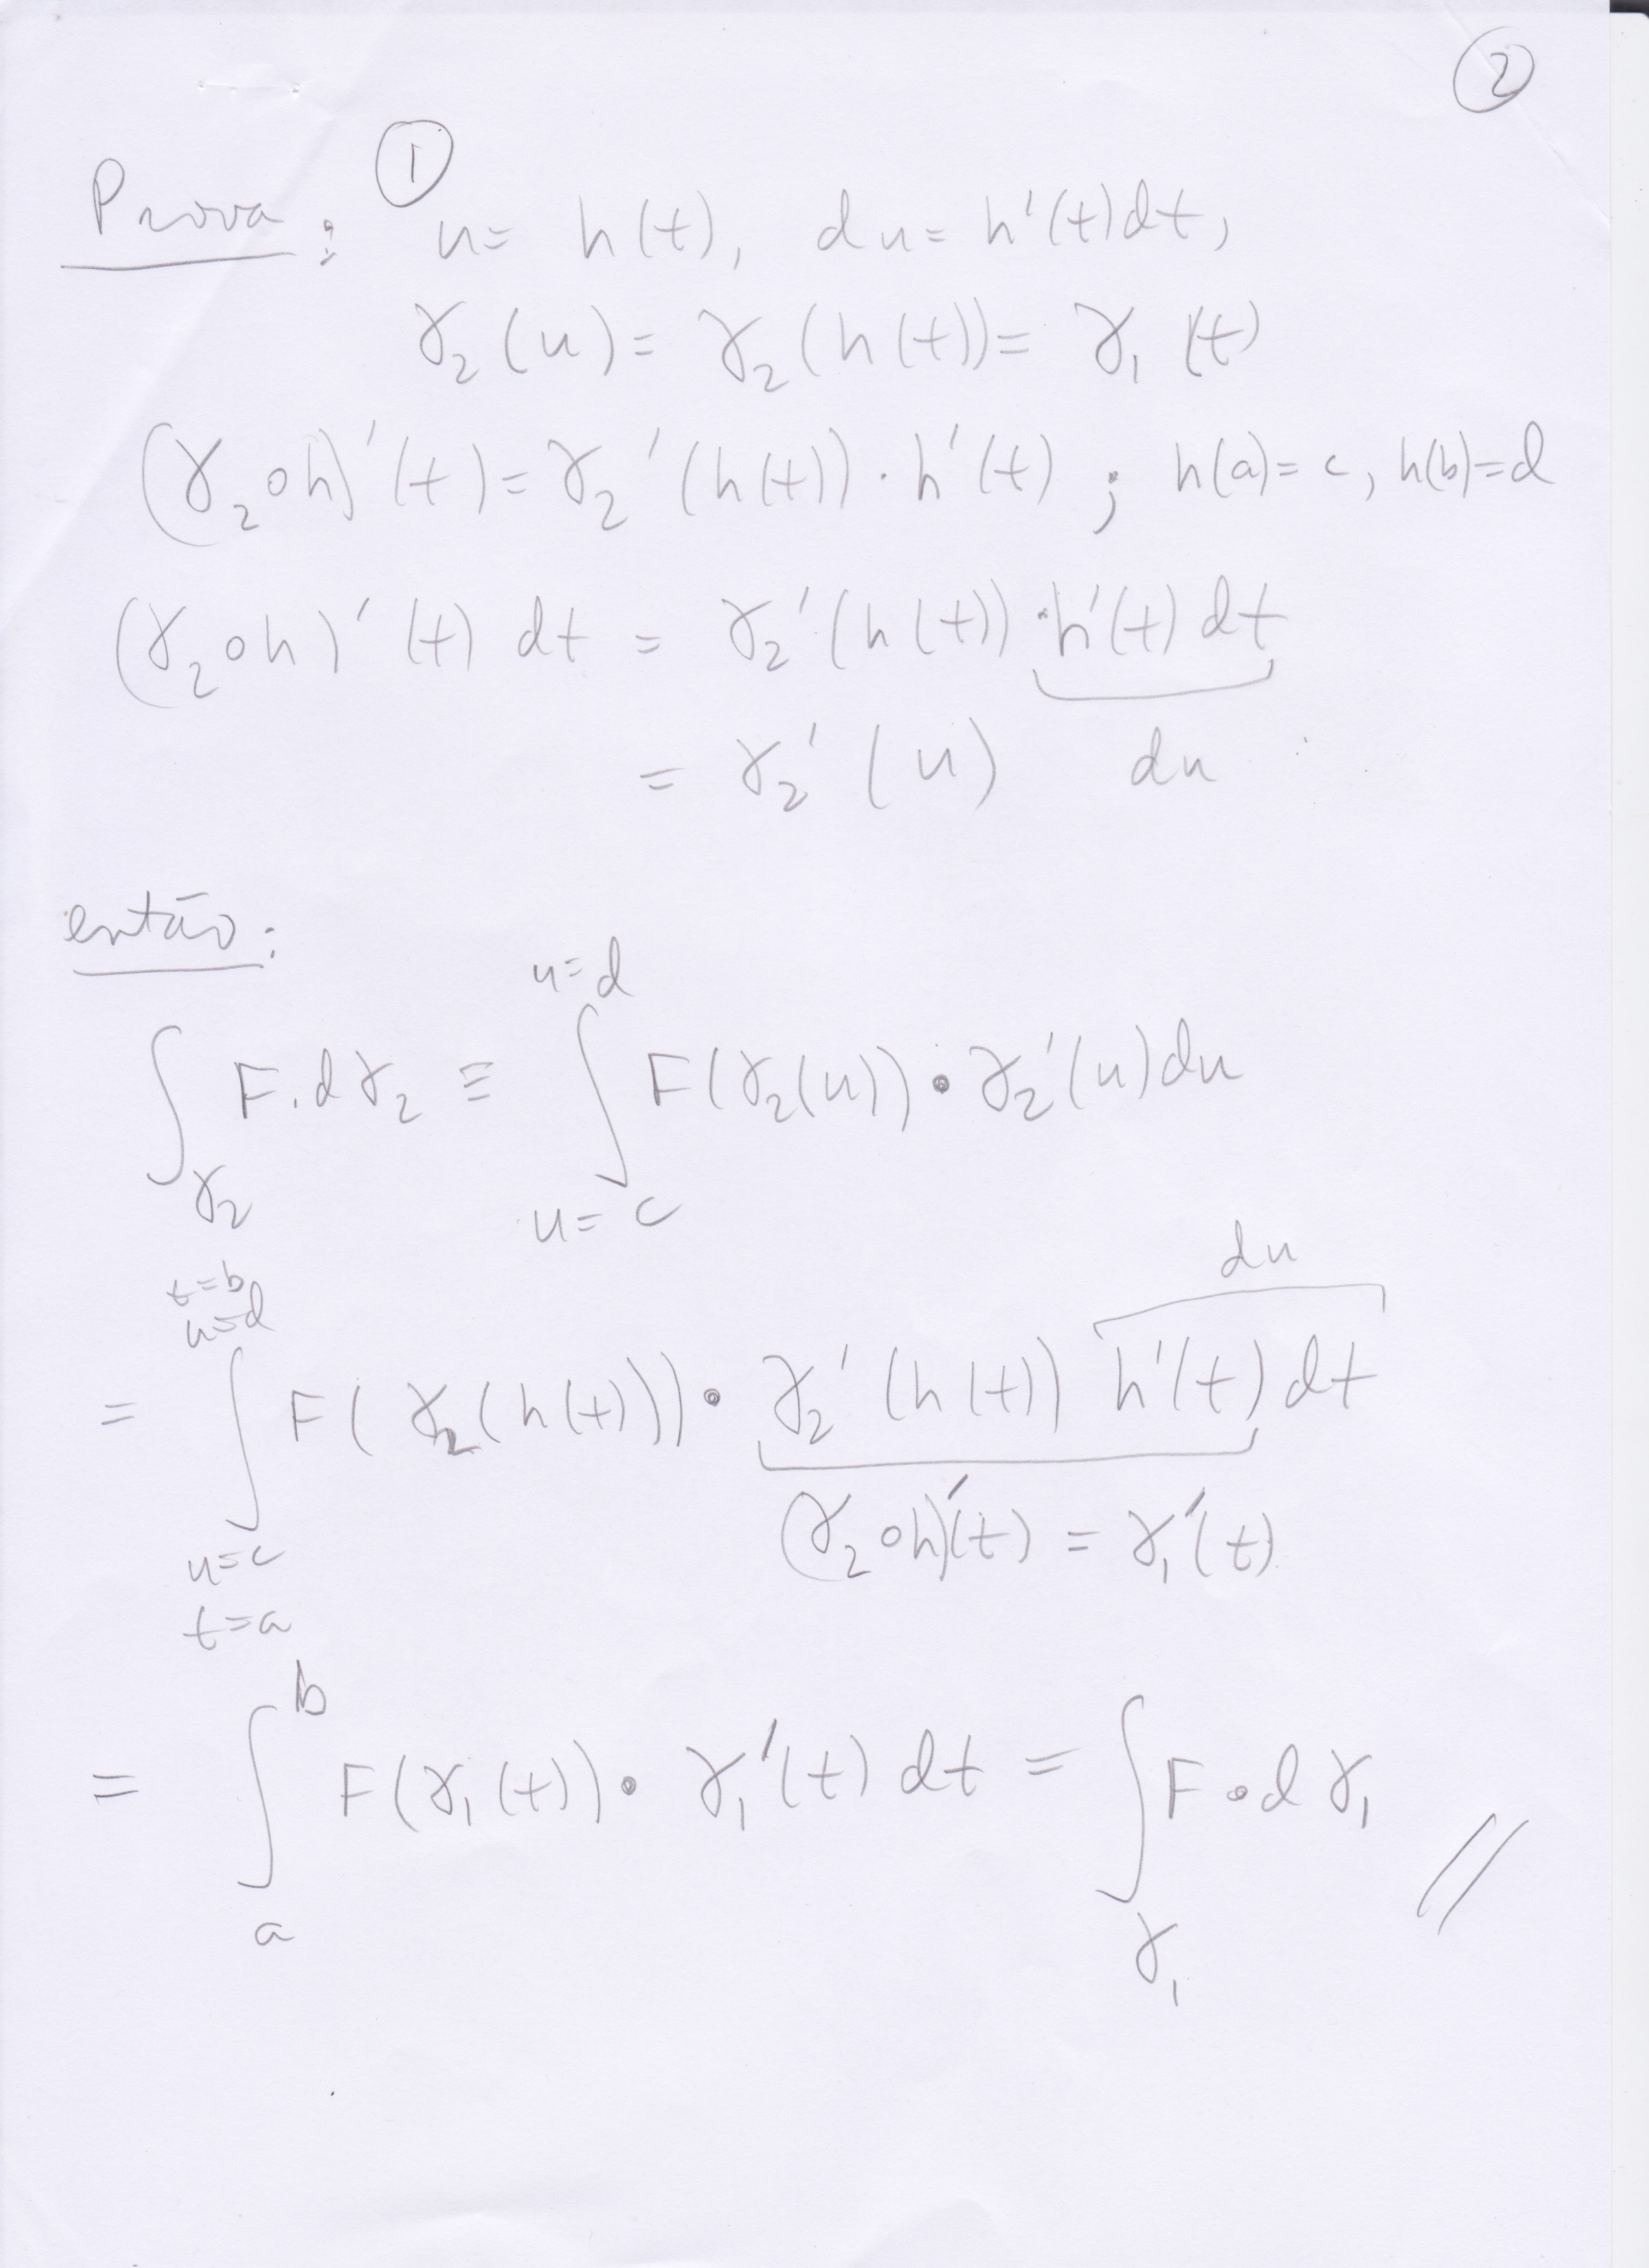 ②
Prova: ① u = h(t), du = h'(t)dt,
γ₂(u) = γ₂(h(t)) = γ₁(t)
(γ₂∘h)'(t) = γ₂'(h(t))·h'(t) ; h(a)=c, h(b)=d
(γ₂∘h)'(t) dt = γ₂'(h(t))·h'(t) dt
= γ₂'(u) du
então:
u=d
∫ F.dγ₂ ≡ ∫ F(γ₂(u))•γ₂'(u)du
γ₂ u=c
du
t=b
u=d
= ∫ F(γ₂(h(t)))•γ₂'(h(t)) h'(t)dt
(γ₂∘h)'(t) = γ₁'(t)
u=c
t=a
b
= ∫ F(γ₁(t))•γ₁'(t) dt = ∫ F•dγ₁ //
a γ₁